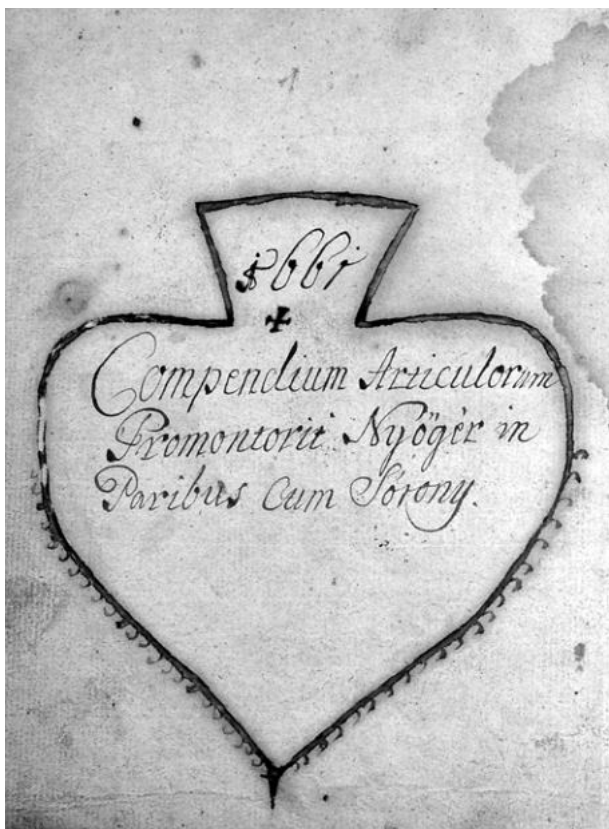 1661
Compendium Articulorum
Promontorii Nyögér in
Paribus Cum Sorony.